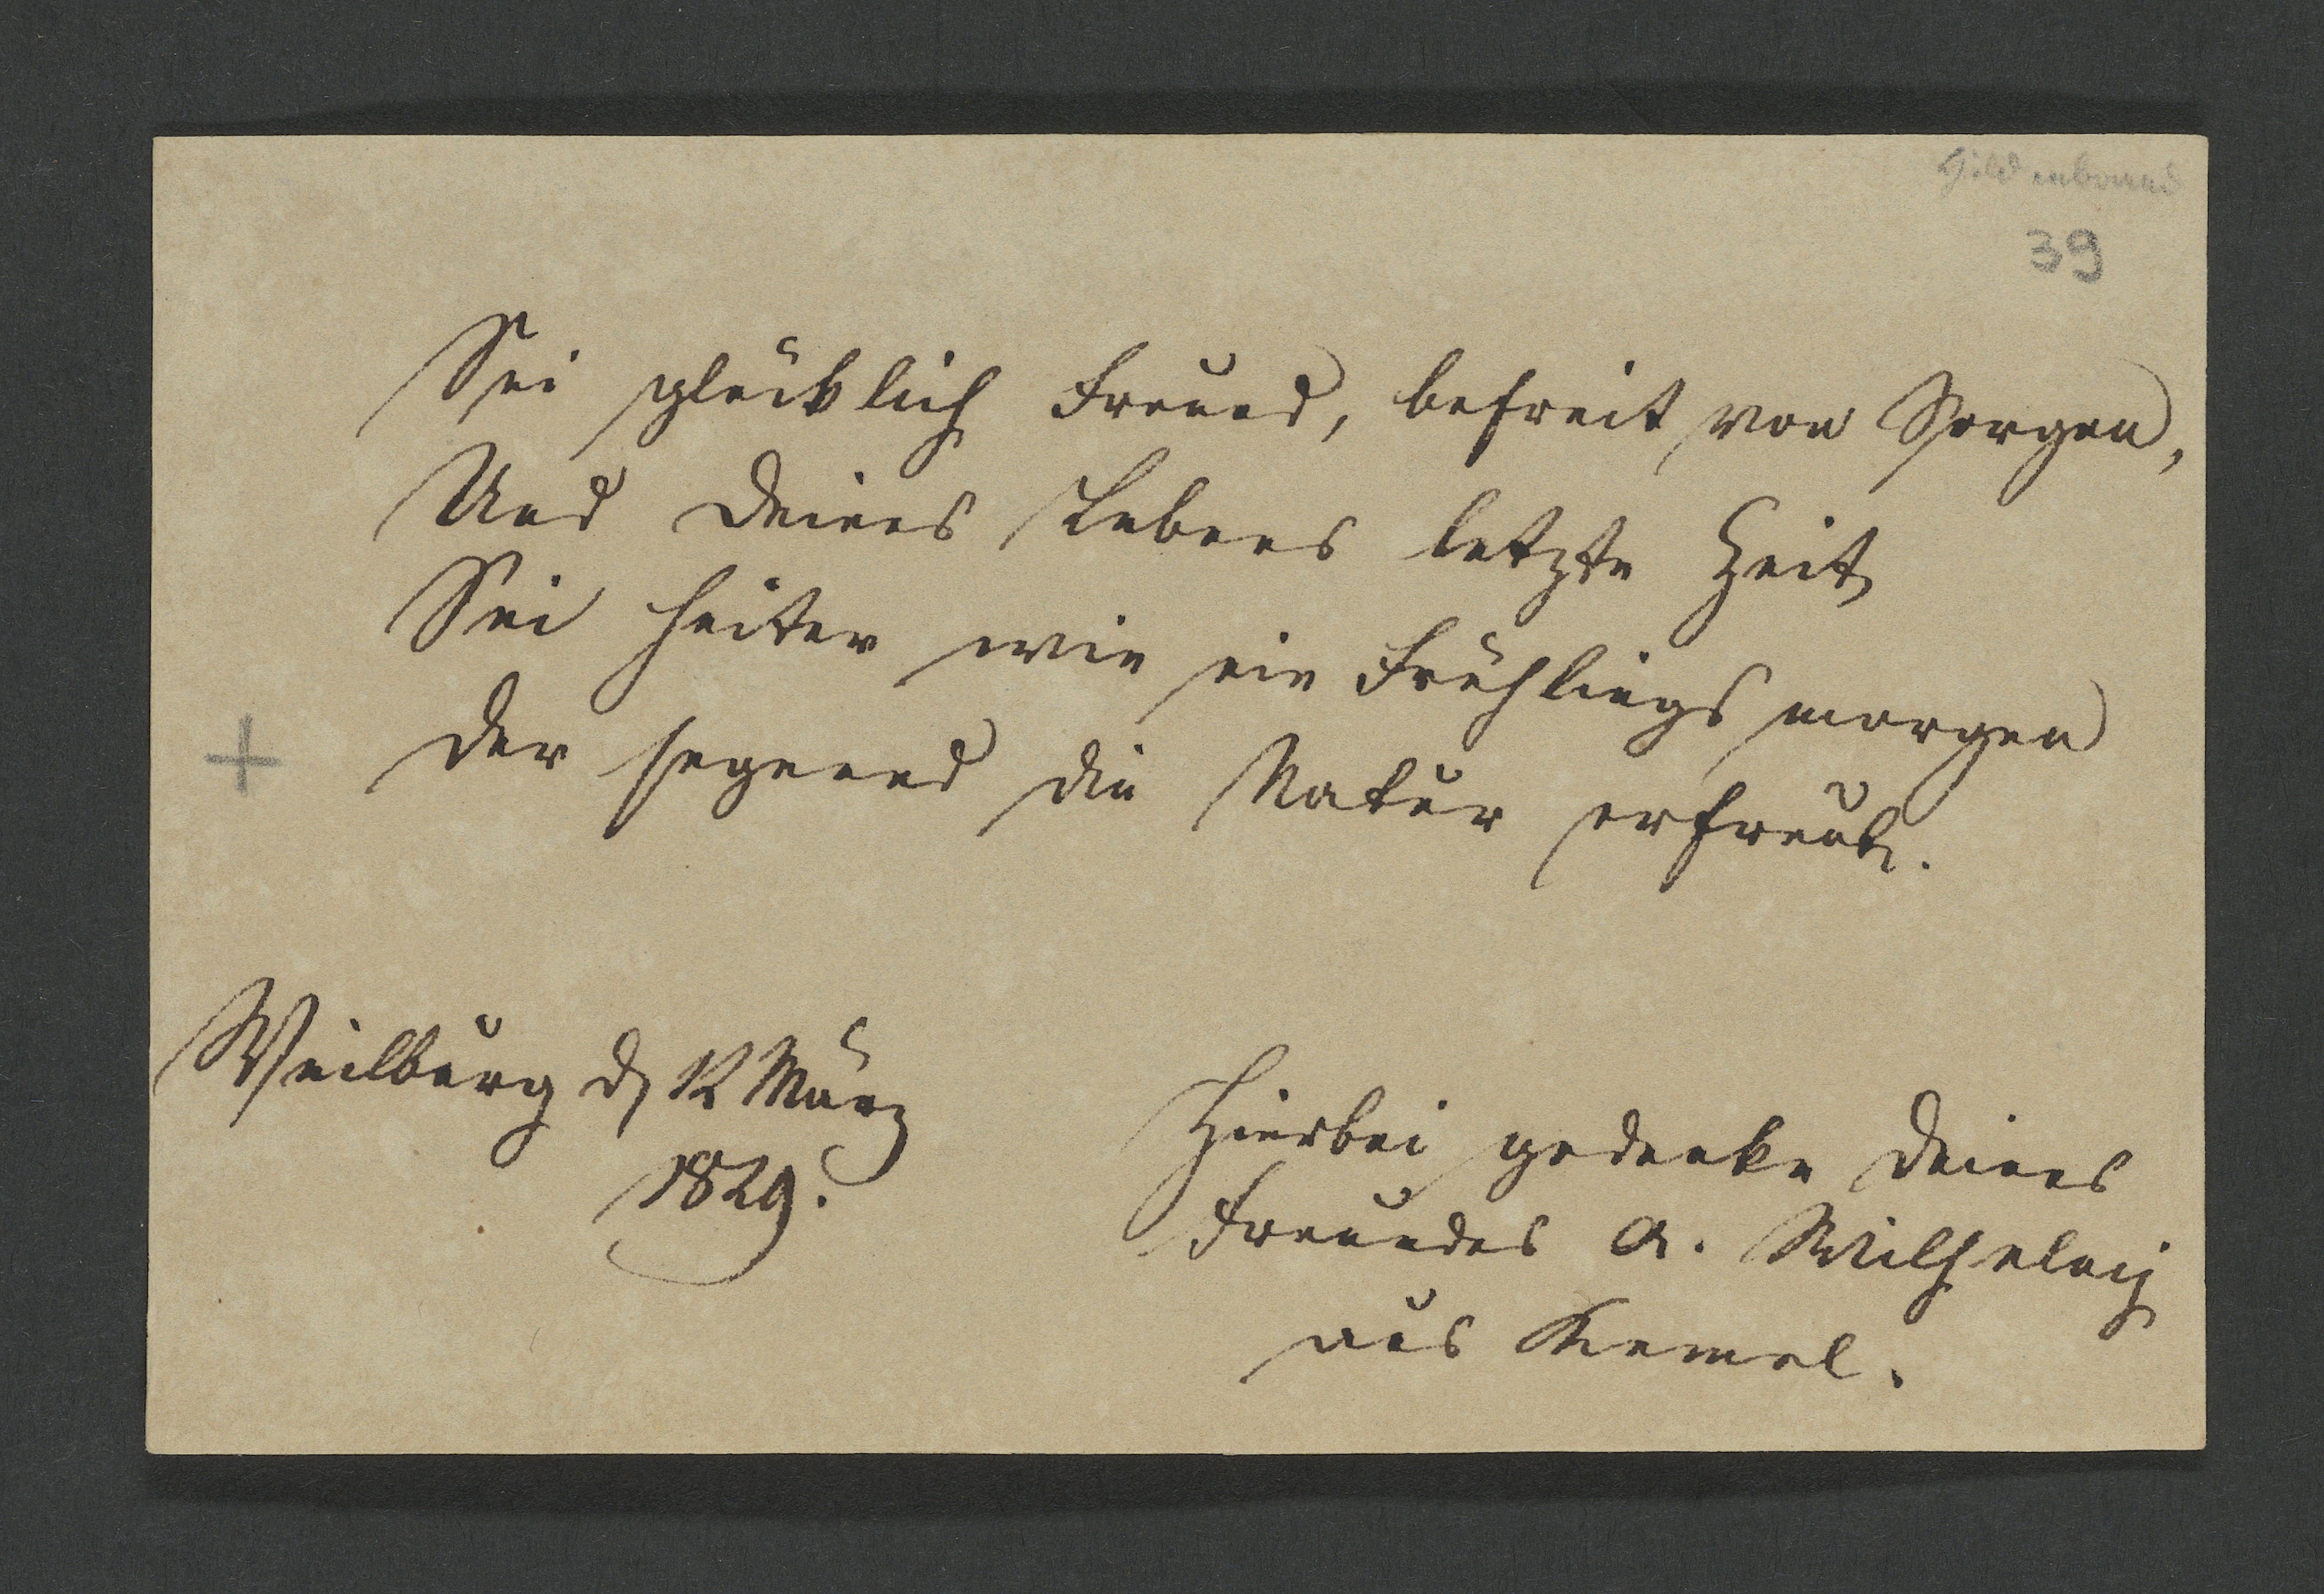 39
Sei glücklich Freund, befreit von Sorgen,
Und Deines Lebens letzte Zeit
Sei heiter wie ein Frühlings morgen
Der segnend die Natur erfreut.
Weilburg d 12 März
1829.
Hierbei gedenke Deines
Freundes A. Wilhelmj
aus Kemel.